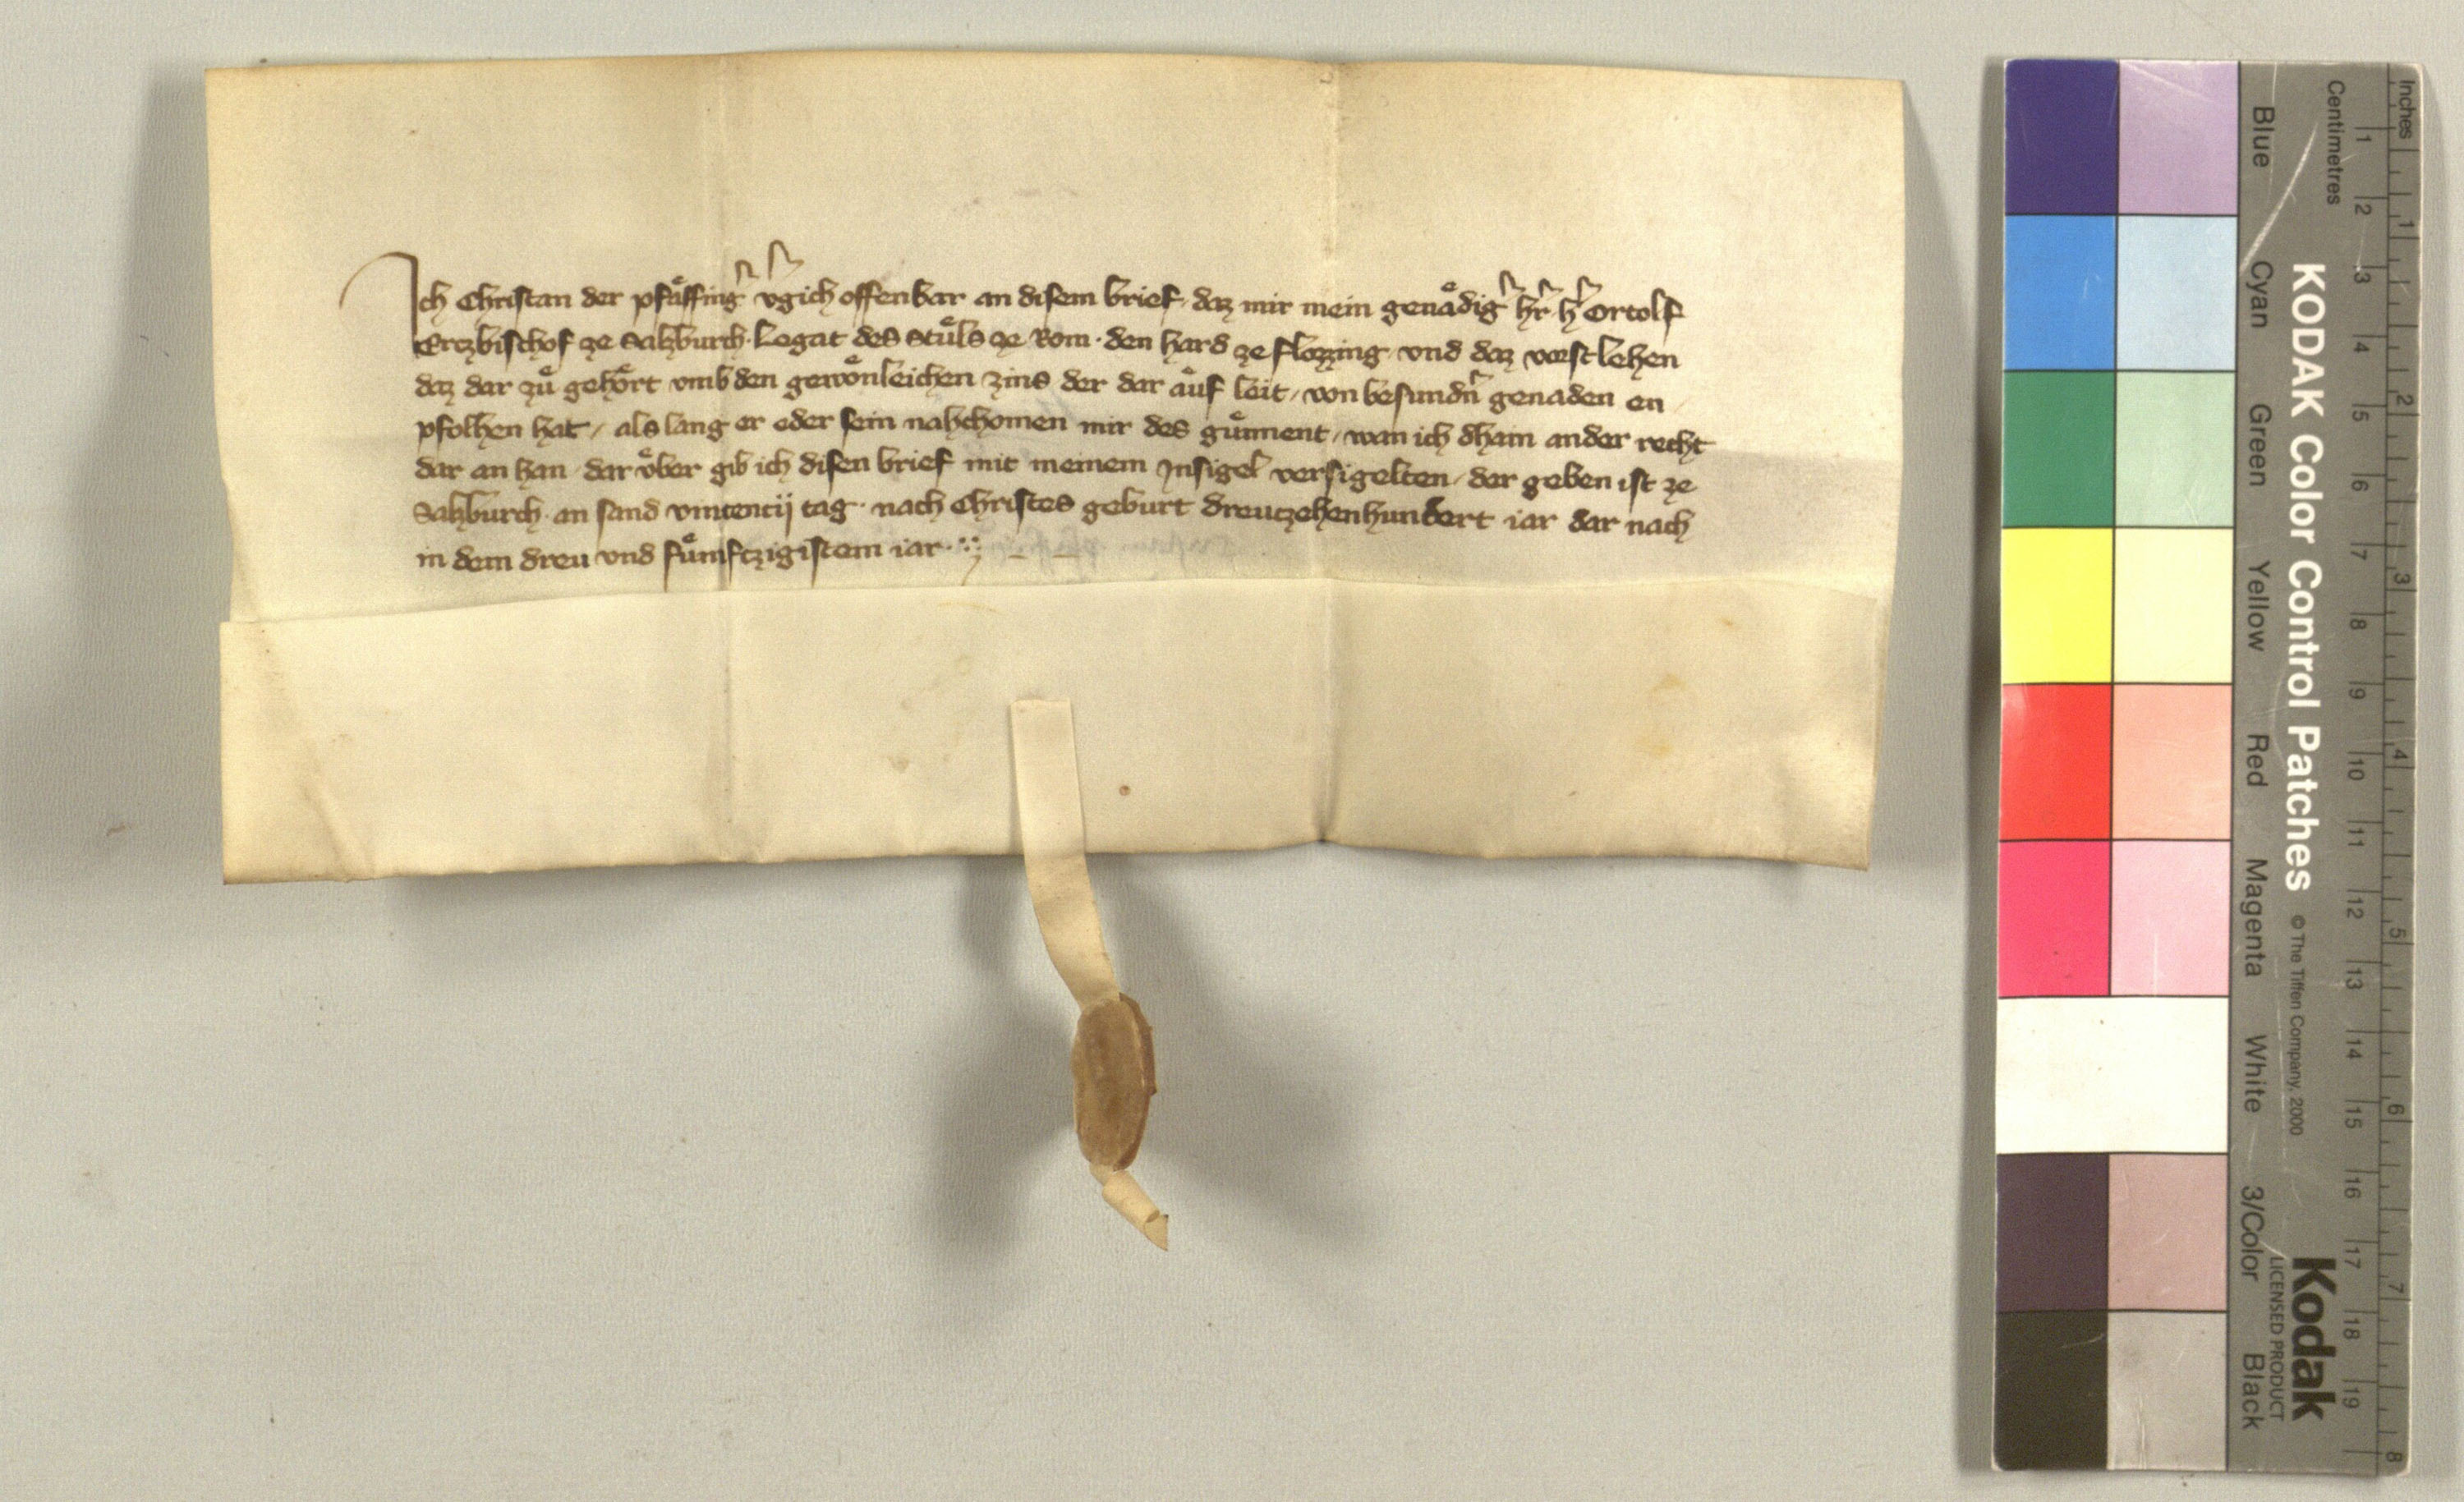 Ich Christan der pfaͤffing͛ v͛gich offenbar an disem brief, daz mir mein genaͤdig͛ hr͛ h͛ Ortolf
Ertzbischof ze Saltzburch. Legat des Stuͤls ze Rom. den hard ze flozzing vnd daz vorstlehen
daz dar zuͤ gehoͤrt vmb den gewoͤnleichen zins der dar aͤuf leit, von besundn͛ genaden en
pfolhen hat, als lang er oder sein nahchomen mir des guͤnnent, wan ich dhain ander recht
dar an han. dar vͤber gib ich disen brief mit meinem Insigel versigelten, der geben ist ze
Saltzburch. an sand vincencij tag. nach Christes geburt dreutzehenhundert iar dar nach
in dem dreu vnd fuͤmftzigistem iar.
Inches
Centimetres
1 2 3 4 5 6 7 8 9 10 11 12 13 14 15 16 17 18 19
1 2 3 4 5 6 7 8
KODAK Color Control Patches © The Tiffen Company, 2000
Kodak
LICENSED PRODUCT
Blue Cyan Green Yellow Red Magenta White 3/Color Black